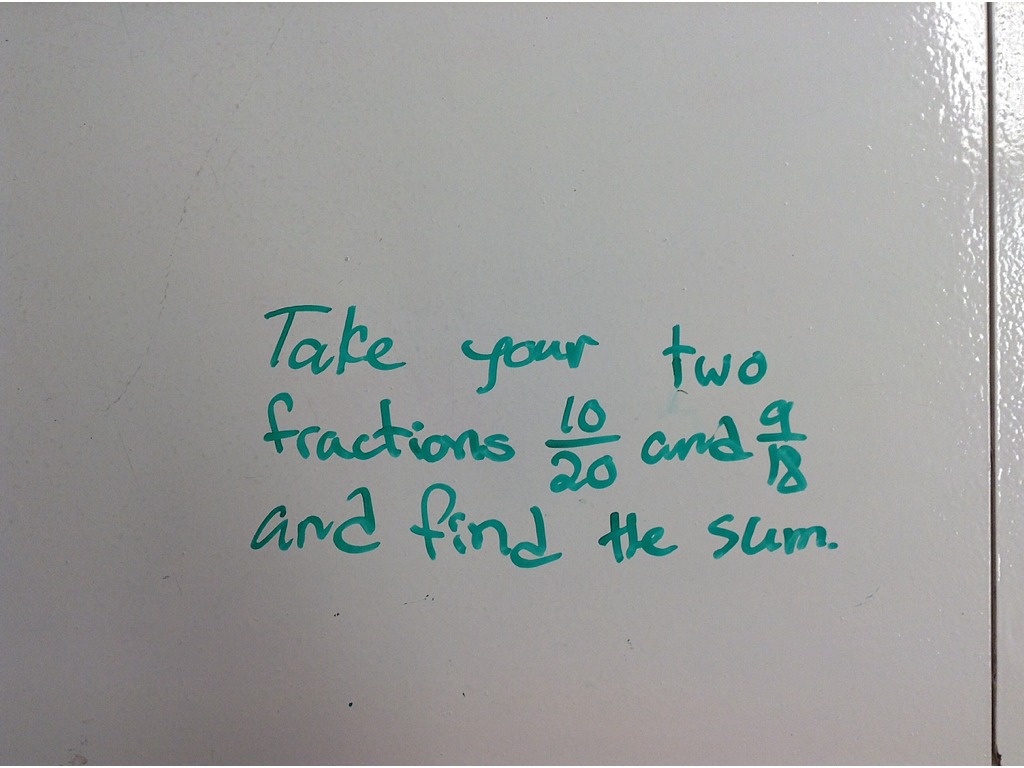 Take your two
fractions 10/20 and 9/18
and find the sum.